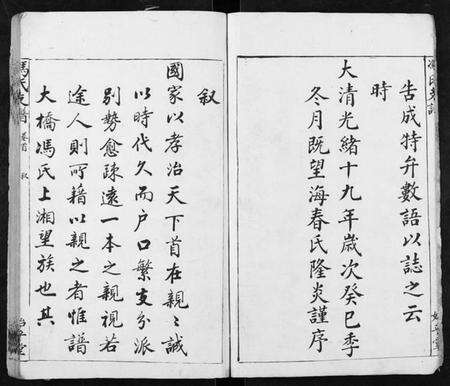 告成特弁數語以誌之云
時
大清光緒十九年歲次癸巳季
冬月既望海春氏隆炎謹序
叙
國家以孝治天下首在親〻誠
以時代久而户口繁支分派
别勢愈疎遠一本之親視若
途人則所藉以親之者惟譜
大橋馮氏上湘望族也其
馮氏支譜
卷首
叙